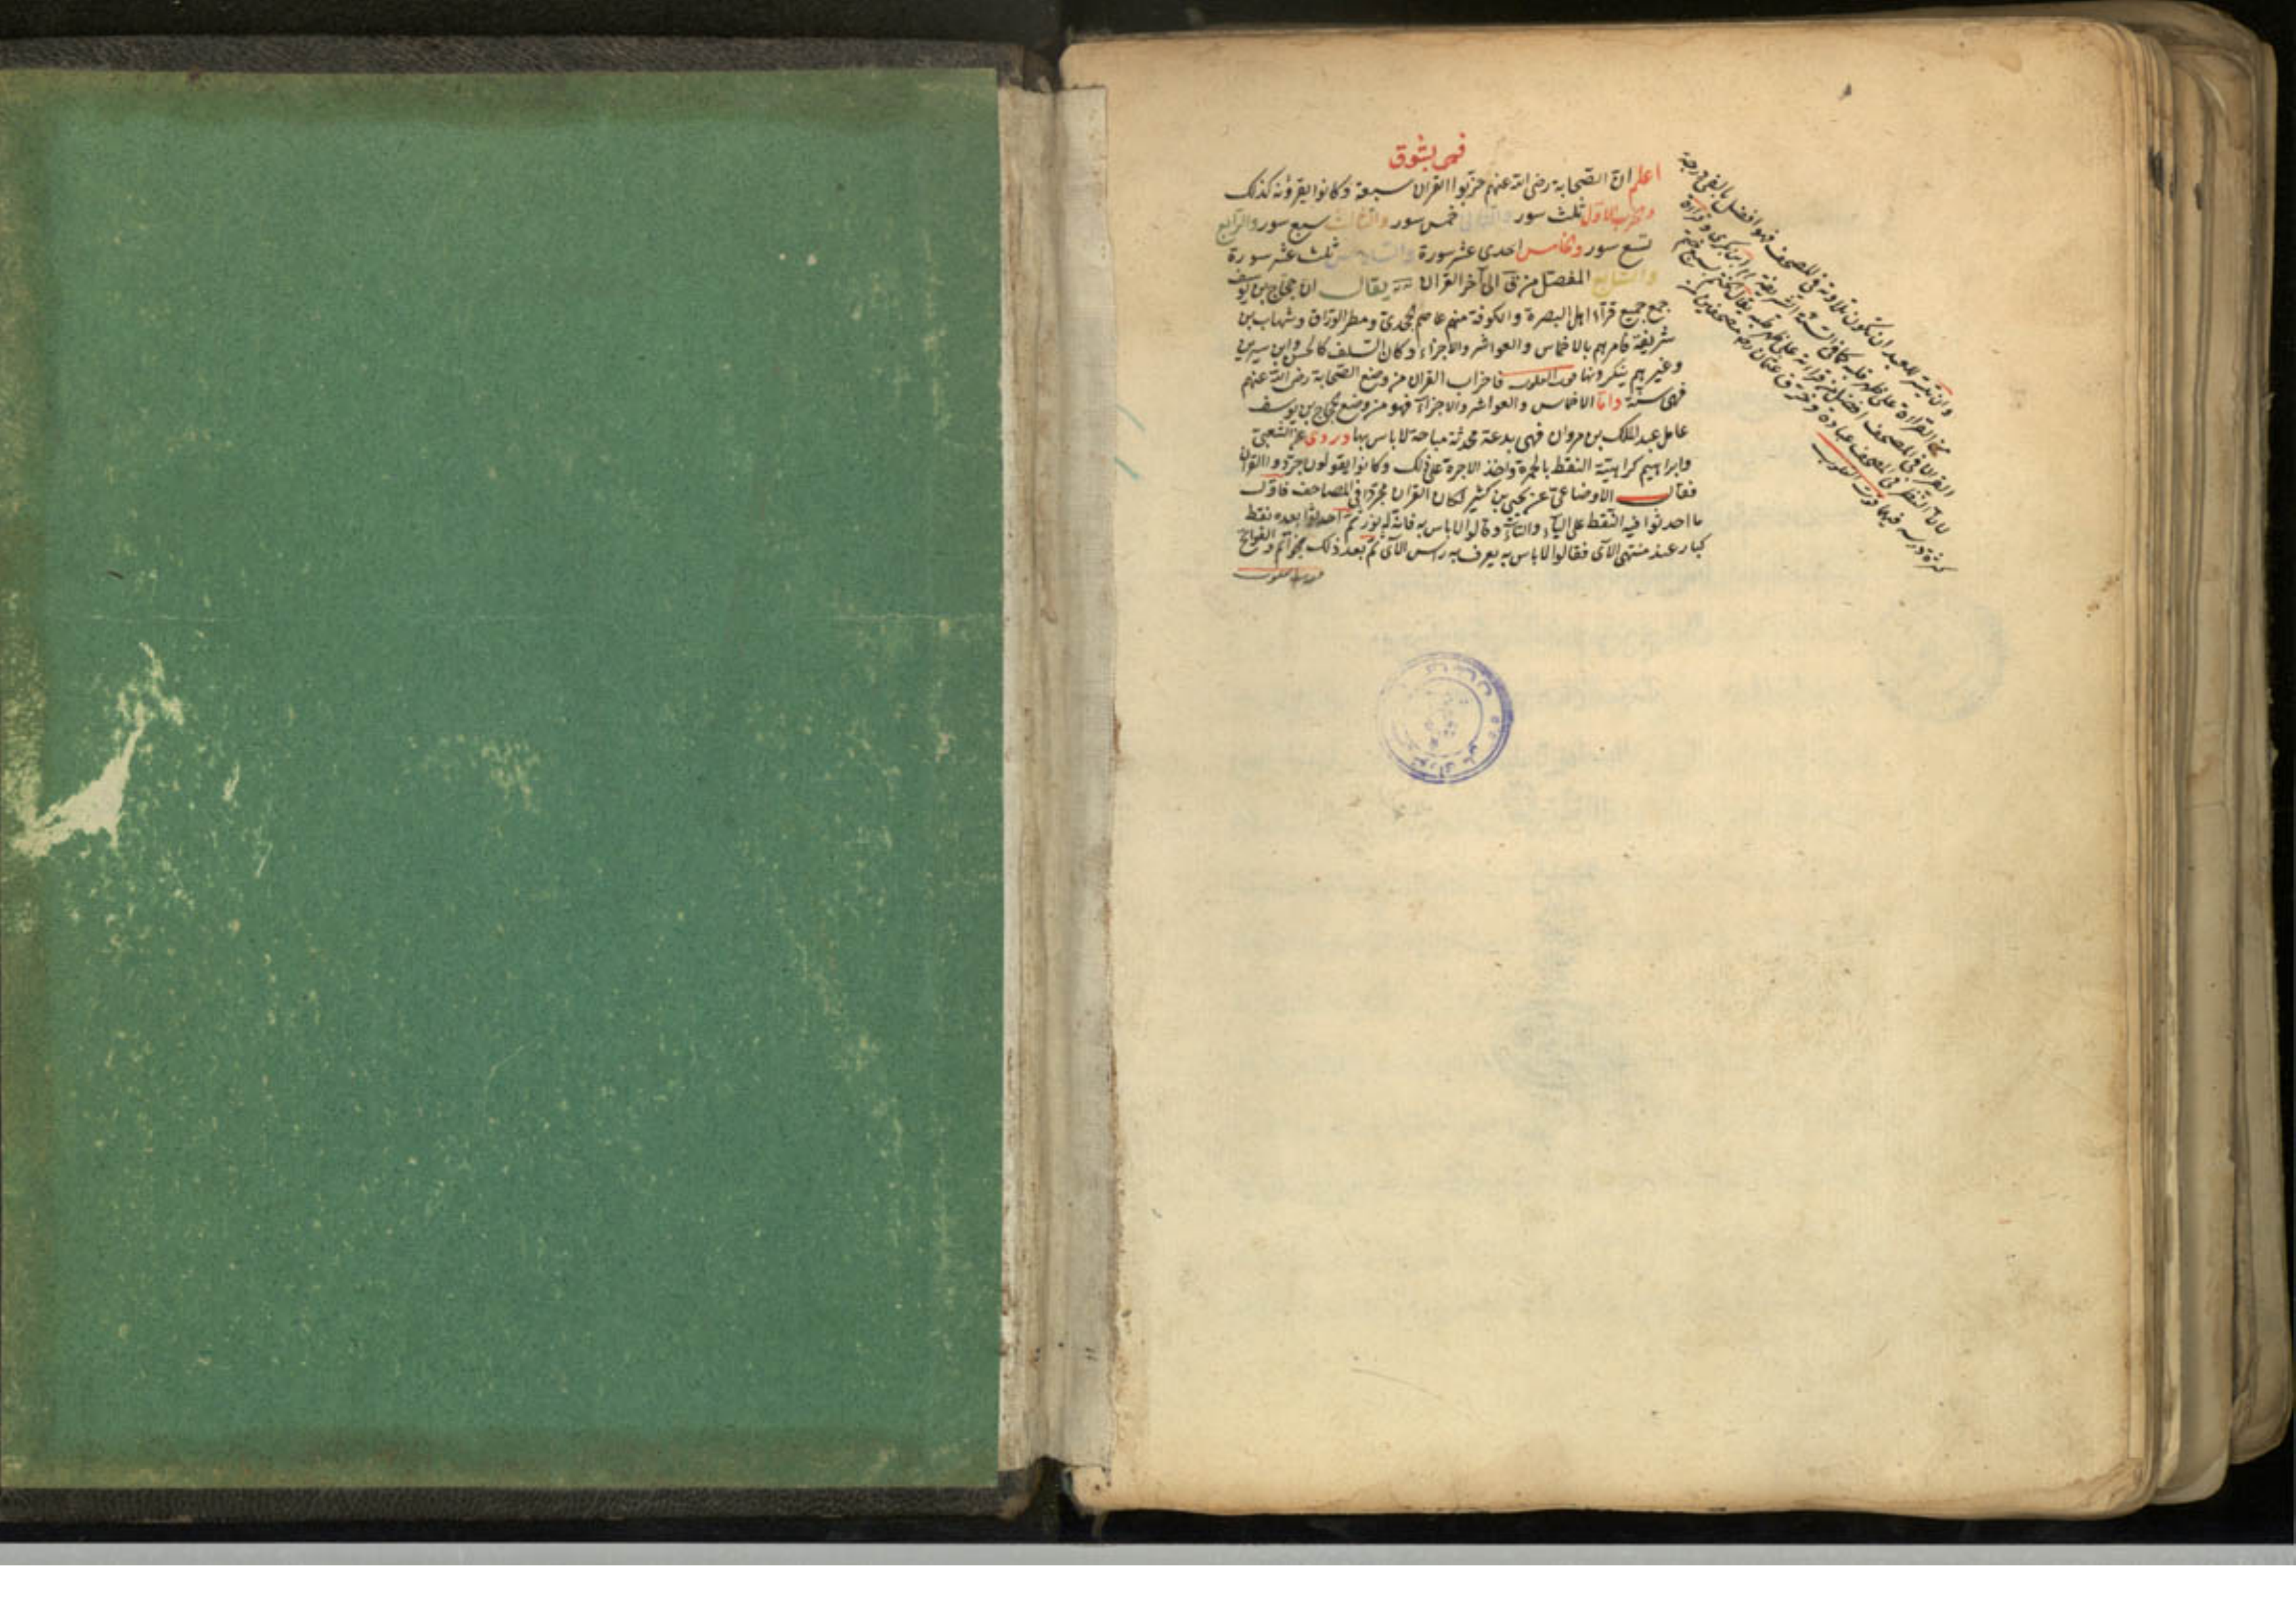 فمى بشوق
اعلم ان الصحابة رضى الله عنهم حزبوا القران سبعة وكانوا يقرؤنه كذلك
وحزب الاول ثلث سور والثانى خمس سور والثالث سبع سور والرابع
تسع سور وخامس احدى عشر سورة والسادس ثلث عشر سورة
والسابع المفصل من ق الى آخر القران يقال ان حجاج بن يوسف
جمع جميع قراء اهل البصرة والكوفة منهم عاصم الجحدرى ومطر الوراق وشهاب بن
شريفة فامرهم بالاخماس والعواشر والاجزاء وكان السلف كالحسن وابن سيرين
وغيرهم ينكرونها قوت القلوب فاحزاب القران من وضع الصحابة رضى الله عنهم
فهى سنة واما الاخماس والعواشر والاجزاء فهو من وضع حجاج بن يوسف
عامل عبد الملك بن مروان فهى بدعة محدثة مباحة لا باس بها وروى عن الشعبى
وابراهيم كراهية النقط بالحمرة واخذ الاجرة على ذلك وكانوا يقولون جردوا القران
فقال الاوضاعى عن يحيى بن كثير كان القران مجردا فى المصاحف فاول
ما احدثوا فيه النقط على الياء والتاء وقالوا لا باس به فانه له نور ثم احدثوا بعده نقط
كبار عند منتهى الآى فقالوا لا باس به يعرف به رأس الآى ثم بعد ذلك خواتم و الفواتح
قوت القلوب
وان تيسر للعبد ان تكون تلاوته فى المصحف فهو افضل بالفى درجة
من القراءة على ظهر قلبه كما فى السنة الشريفة وقراءة
القران فى المصحف افضل من قراءته على ظهر قلبه يقال ختم بسبع ختمة
لان النظر فى المصحف عبادة وخرق عثمان رض مصحفين من
كثرة درسه فيهما قوت القلوب